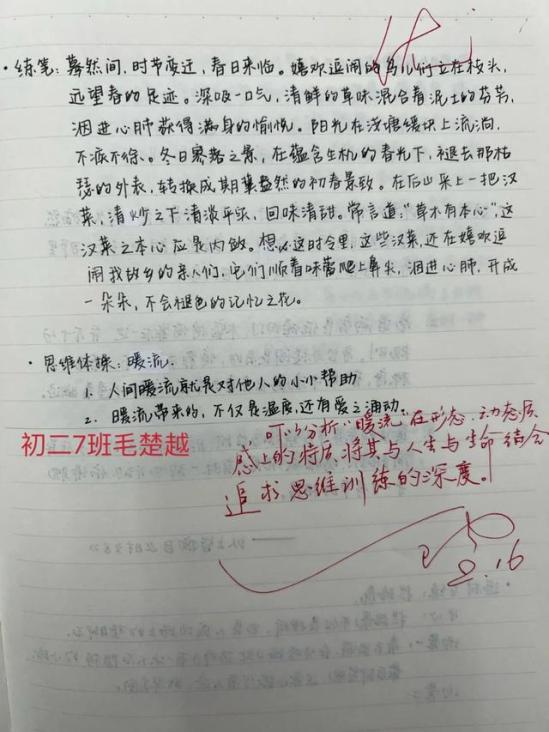 ·练笔：蓦然间，时节变迁，春日来临。嬉欢逗闹的鸟儿们立在枝头，
远望春的足迹。深吸一口气，清鲜的草味混合着泥土的芬芳，
洇进心肺获得满身的愉悦。阳光在浅塘缓块上流淌，
不疾不徐。冬日寒豁之景，在蕴含生机的春光下，褪去那枯
瑟的外表，转换成期冀盎然的初春景致。在后山采上一把汉
菜，清炒之下清淡平实，回味清甜。常言道："草木有本心"，这
汉菜之本心应是内敛。想必这时令里，这些汉菜，还在嬉欢逗
闹我故乡的亲人们，它们顺着味蕾爬上鼻尖，洇进心肺，开成
一朵朵，不会褪色的记忆之花。
·思维体操：暖流.
1. 人间暖流就是对他人的小小帮助
2. 暖流带来的，不仅是温度，还有爱之涌动。
初二7班毛楚越
可以分析"暖流"在形态、动态质
感上的特质，将其与人生与生命结合
追求思维训练的深度。
2.16